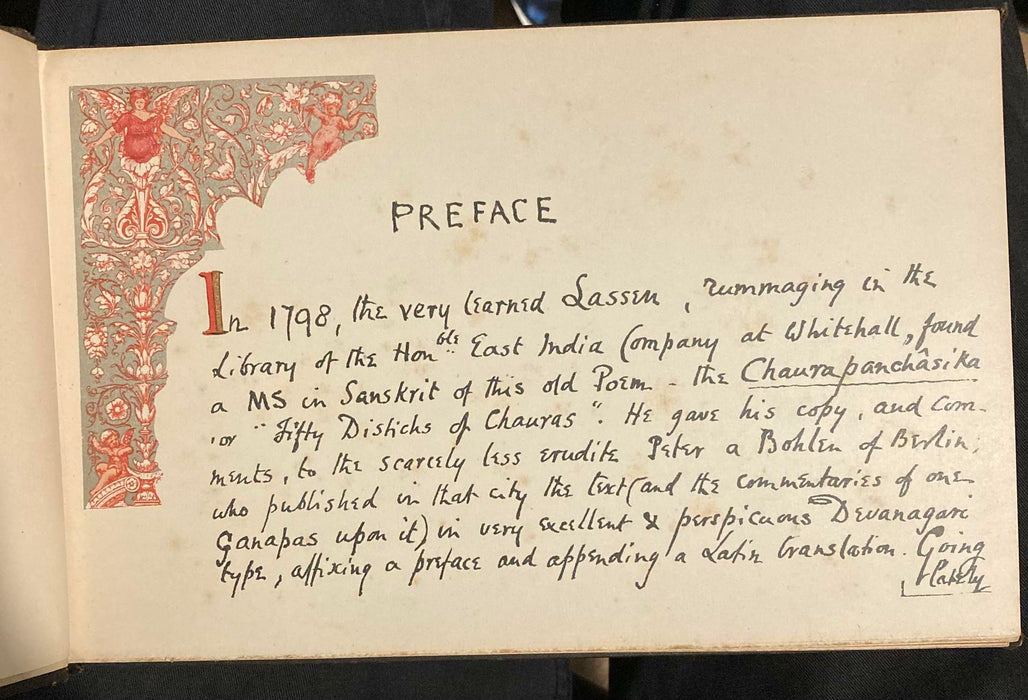 PREFACE
In 1798, the very learned Lassen, rummaging in the
Library of the Honble East India Company at Whitehall, found
a MS in Sanskrit of this old Poem - the Chaurapanchâsika
, or "Fifty Distichs of Chauras". He gave his copy, and com-
ments, to the scarcely less erudite Peter a Bohlen of Berlin,
who published in that city the text (and the commentaries of one
Ganapas upon it) in very excellent & perspicuous Devanagari
type, affixing a preface and appending a Latin translation. Going
lately